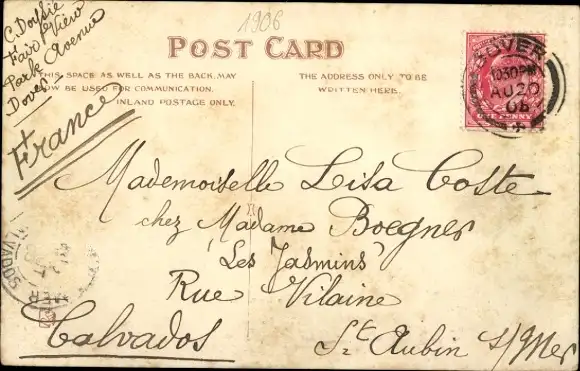 1906
C. Doysie
Fair View
Park Avenue
Dover
France
POST CARD
THIS SPACE AS WELL AS THE BACK, MAY
NOW BE USED FOR COMMUNICATION.
INLAND POSTAGE ONLY.
THE ADDRESS ONLY TO BE
WRITTEN HERE.
DOVER
10.30 PM
AU 20
06
ONE PENNY
Mademoiselle Lisa Coste
chez Madame Boegner
"Les Jasmins"
Rue Vilaine
Calvados
St Aubin s/Mer
CALVADOS
MER